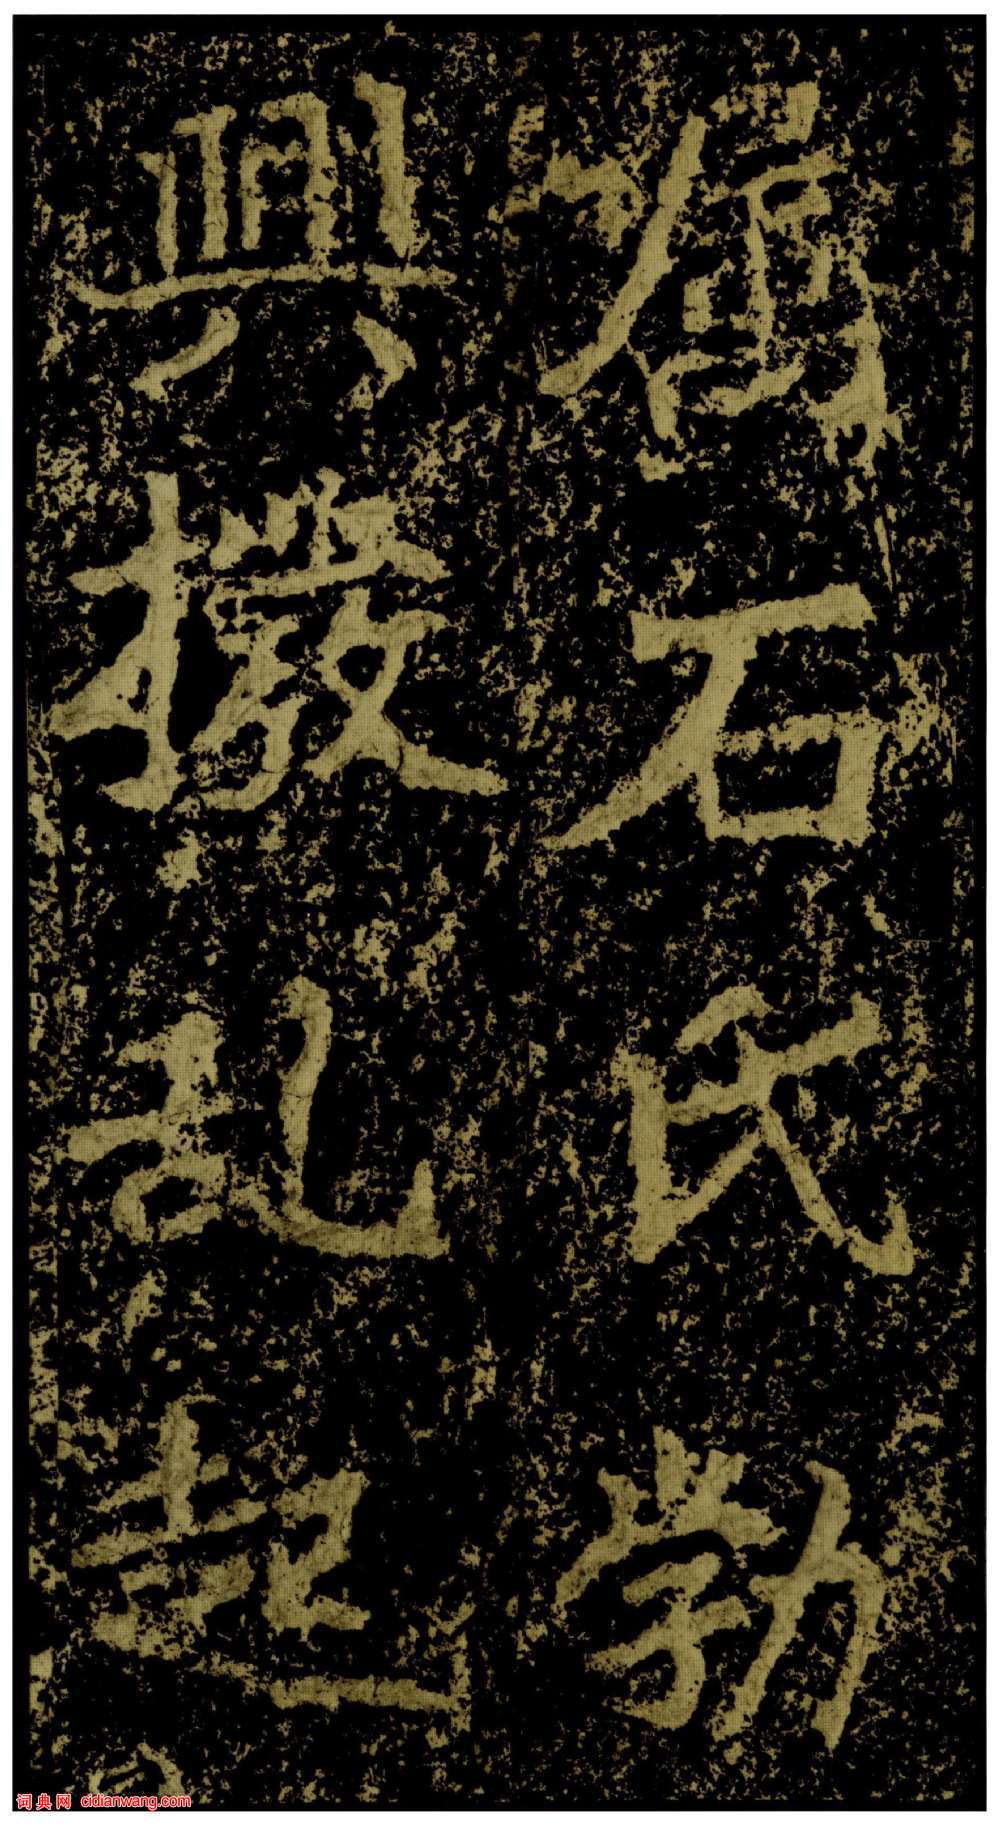 属石氏勃
興撥乱起
词典网 cidianwang.com